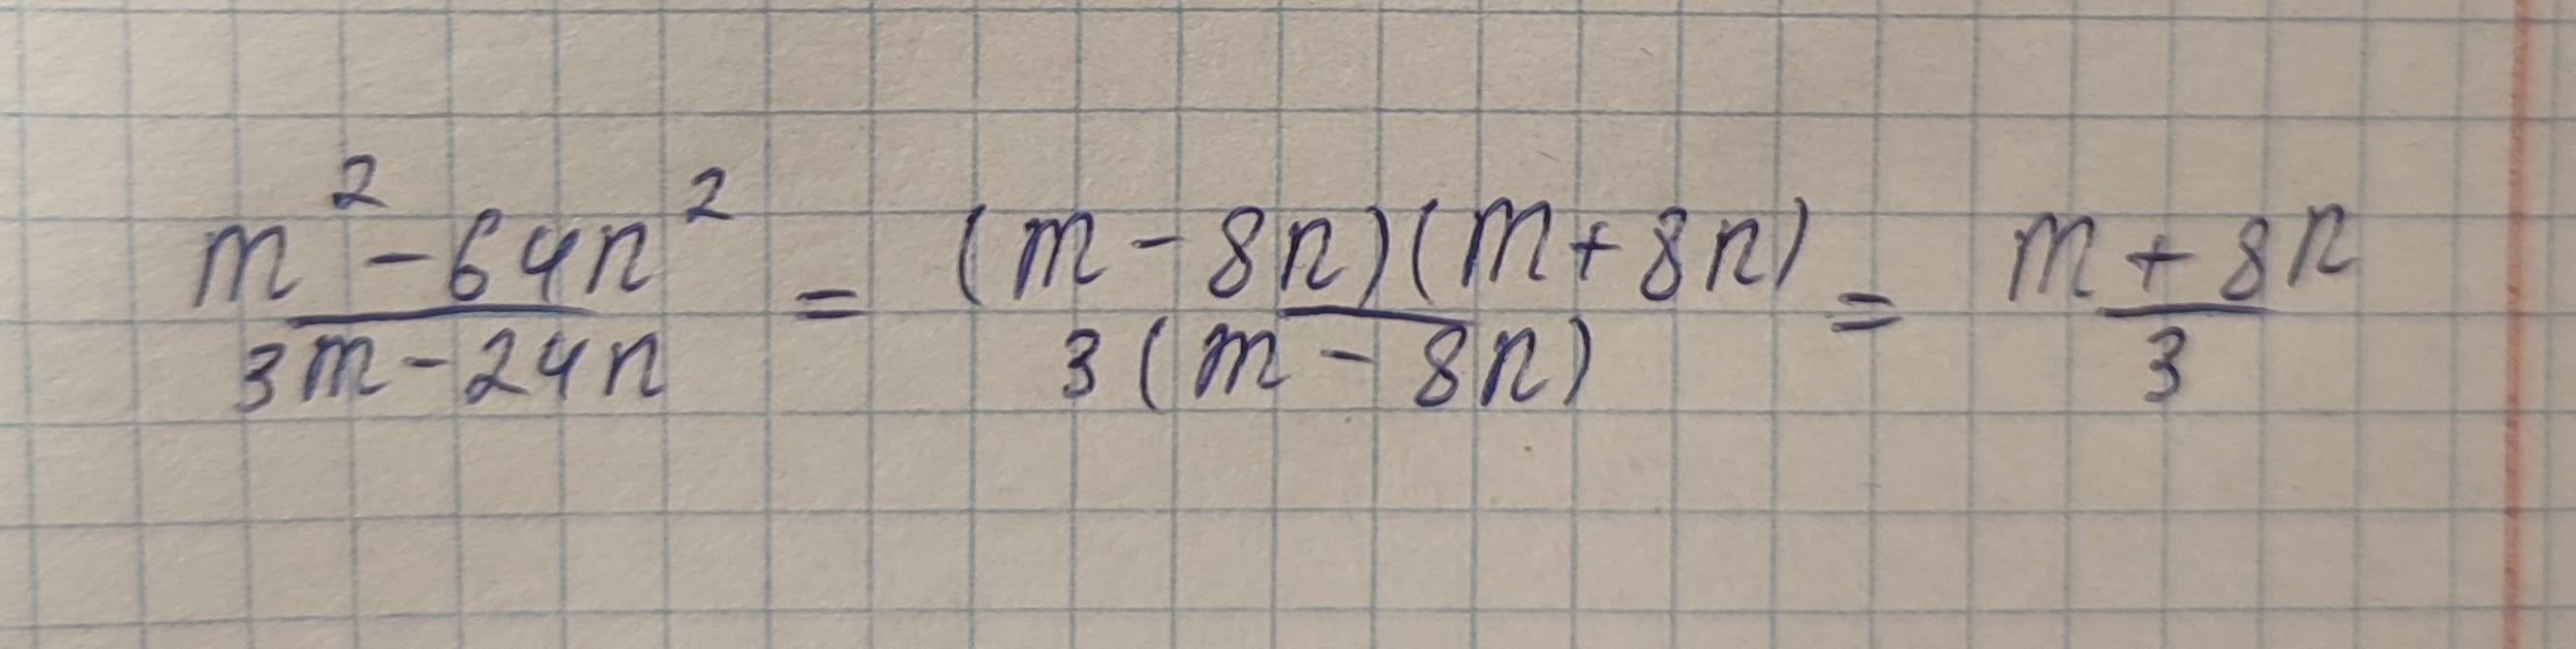 m² - 64n² / 3m - 24n = (m - 8n)(m + 8n) / 3(m - 8n) = m + 8n / 3